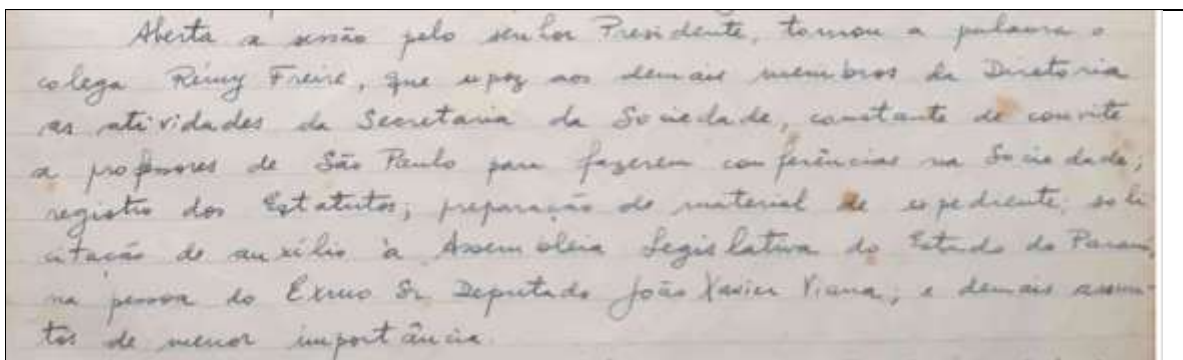 Aberta a sessão pelo senhor Presidente, tomou a palavra o
colega Rémy Freire, que expoz aos demais membros da Diretoria
as atividades da Secretaria da Sociedade, constante de convite
a professores de São Paulo para fazerem conferências na Sociedade;
registro dos Estatutos; preparação do material de expediente; soli
citação de auxílio à Assembléia Legislativa do Estado do Paraná,
na pessoa do Exmo Sr. Deputado João Xavier Viana; e demais assun-
tos de menor importância.